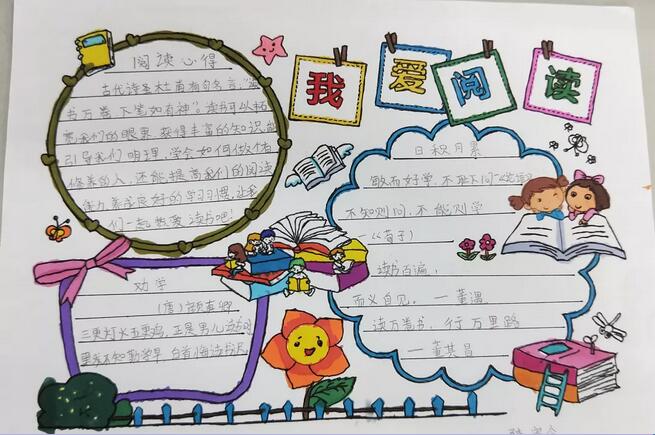 我爱阅读
阅读心得
古代诗圣杜甫有句名言:"
书万卷 下笔如有神"。读书可以拓
我们的眼界 获得丰富的知识,
引导我们 明理,学会如何做个有
修养的人,还能提高我们的阅读
能力 养成良好的学习习惯,让我
们一起热爱读书吧!
劝学
(唐)颜真卿
三更灯火五更鸡,正是男儿读书时
黑发不知勤学早,白首悔读书迟
日积月累
敏而好学,不耻下问—《论语》
不知则问,不能则学
—《荀子》
读书百遍,
而义自见。—董遇
读万卷书,行万里路
—董其昌